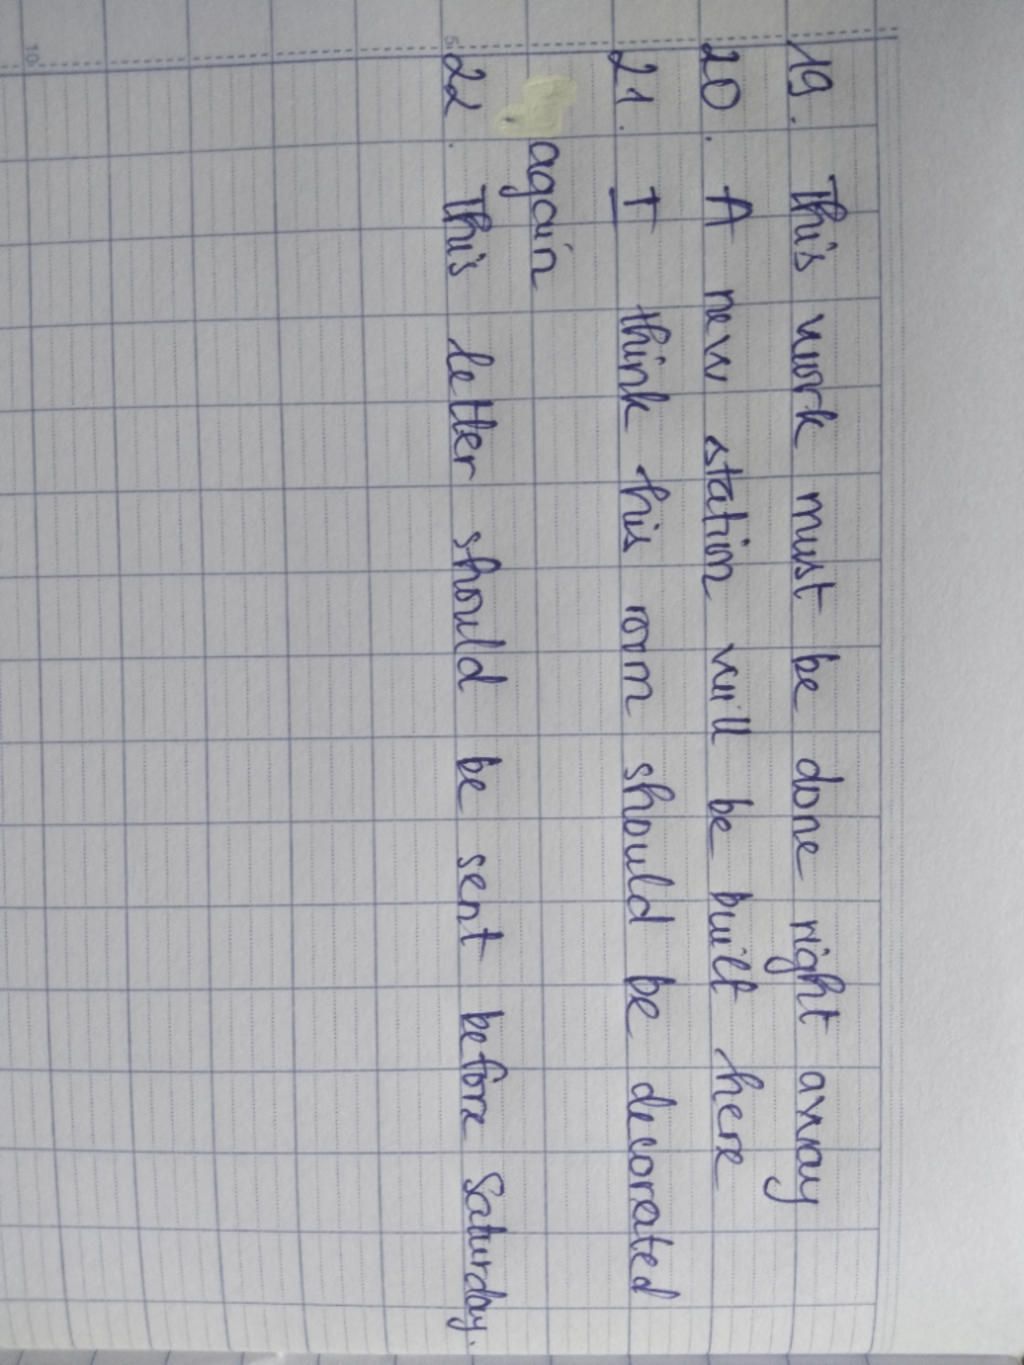 19. This work must be done right away
20. A new station will be built here
21. I think his room should be decorated
again
22. This letter should be sent before Saturday.
5
10